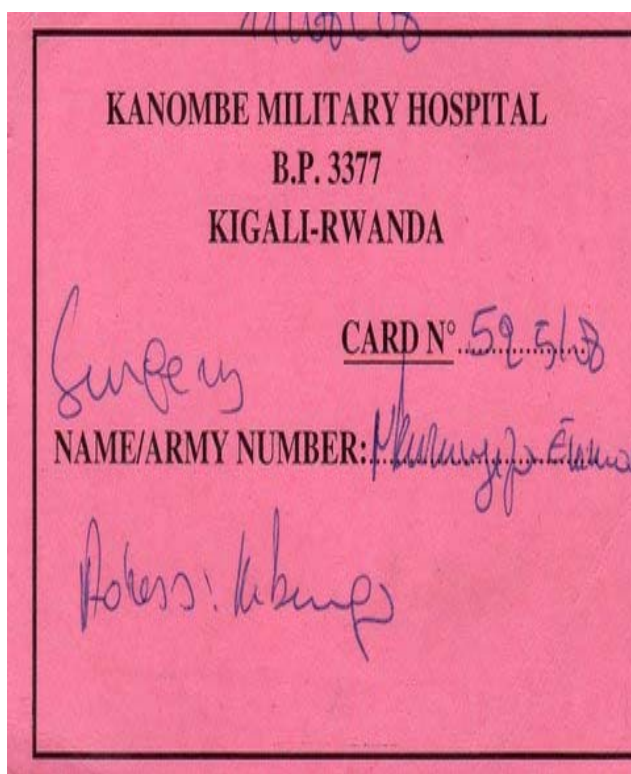 KANOMBE MILITARY HOSPITAL
B.P. 3377
KIGALI-RWANDA
Surgery
CARD N° 525/08
NAME/ARMY NUMBER:
Adress: Kibungo